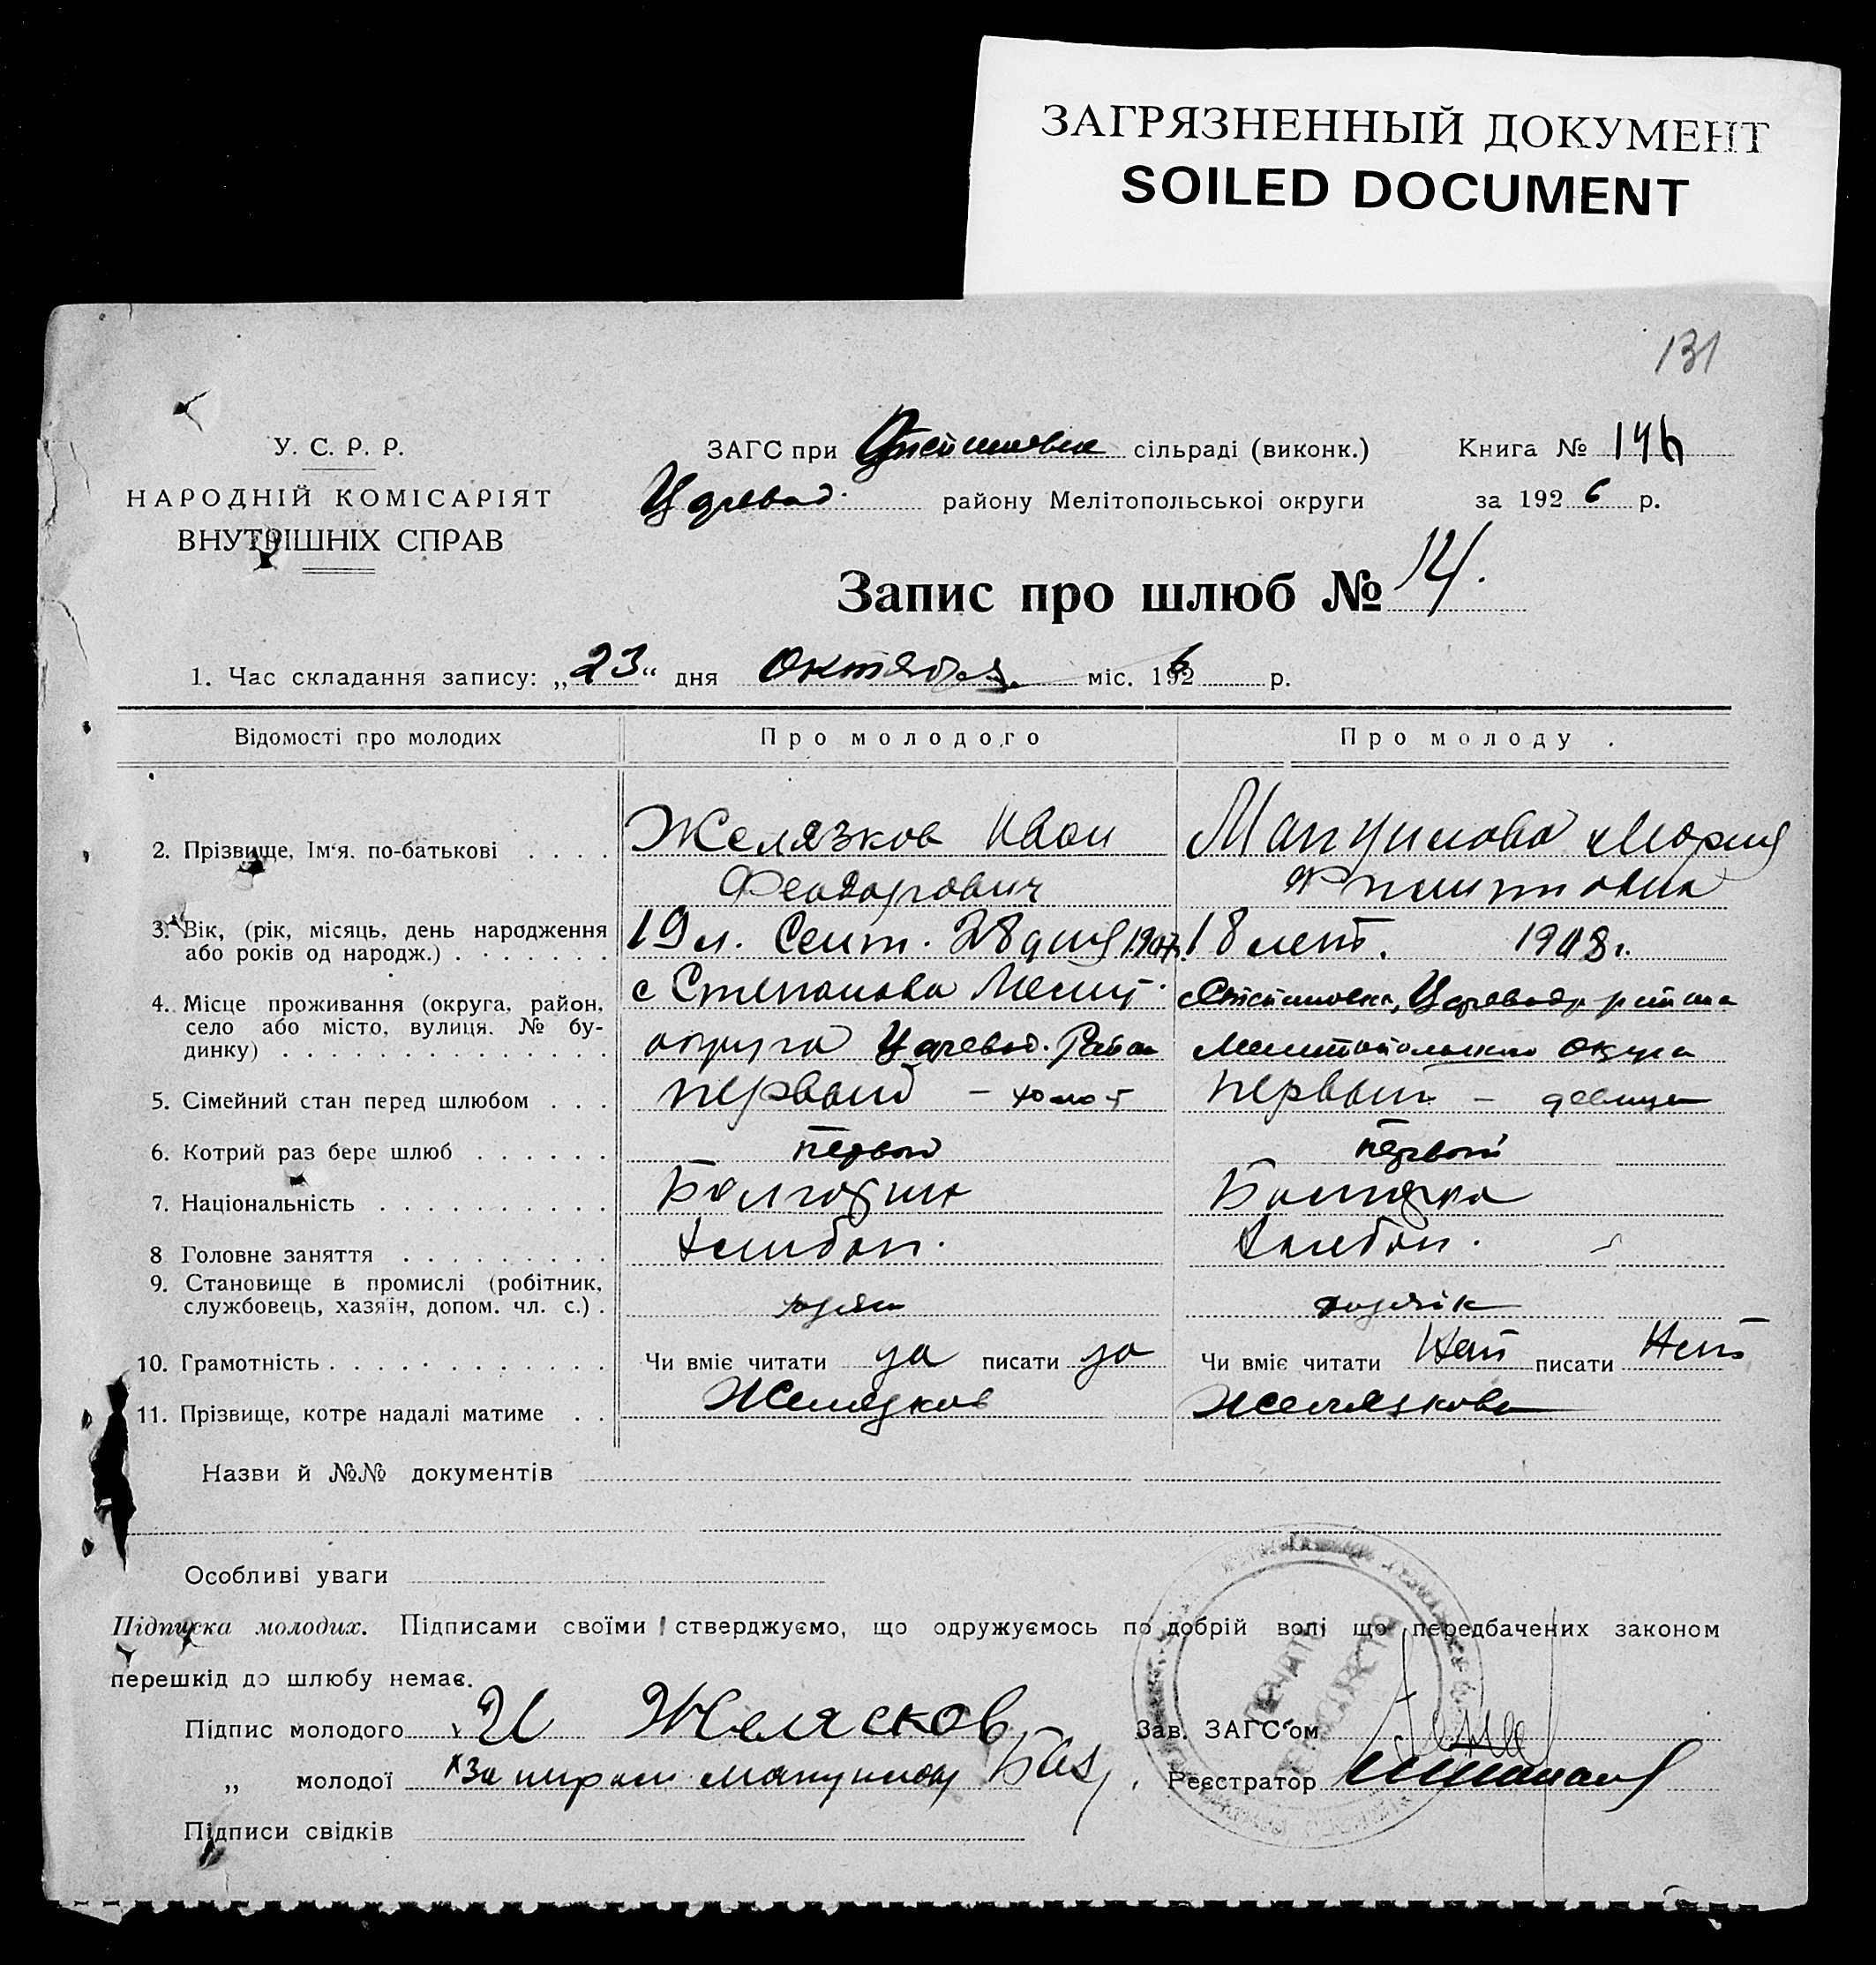 ЗАГРЯЗНЕННЫЙ ДОКУМЕНТ
SOILED DOCUMENT
131
У. С. Р. Р.
НАРОДНІЙ КОМІСАРІЯТ
ВНУТРІШНІХ СПРАВ
ЗАГС при сільраді (виконк.) Книга № 146
Царевод. району Мелітопольської округи за 1926 р.
Запис про шлюб № 14.
1. Час складання запису: „23“ дня Октября міс. 1926 р.
Відомості про молодих Про молодого Про молоду
2. Прізвище, Ім'я. по-батькові Желязков Иван Мария
Феодорович Филиповна
3. Вік, (рік, місяць, день народження 19 л. Сент. 28 дня 1907 18 лет. 1908 г.
або років од народж.)
4. Місце проживання (округа, район, с Степановка Мелит. Степановка, Царевод. района
село або місто, вулиця. № бу-
динку) округа Царевод. Район Мелитопольского округа
5. Сімейний стан перед шлюбом первый – холост первый – девица
6. Котрий раз бере шлюб первый первый
7. Національність Болгарин Болгарка
8 Головне заняття Хлебоп. Хлебоп.
9. Становище в промислі (робітник,
службовець, хазяїн, допом. чл. с.)
10. Грамотність Чи вміє читати да писати да Чи вміє читати Нет писати Нет
11. Прізвище, котре надалі матиме Желязков Желязкова
Назви й №№ документів
Особливі уваги
Підписка молодих. Підписами своїми стверджуємо, що одружуємось по добрій волі що передбачених законом
перешкід до шлюбу немає.
Підпис молодого И Желясков Зав. ЗАГС'ом
„ молодої Реєстратор
Підписи свідків